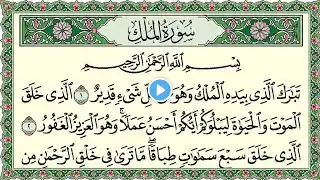 سُورَةُ الْمُلْكِ
بِسْمِ اللَّهِ الرَّحْمَٰنِ الرَّحِيمِ
تَبَارَكَ الَّذِي بِيَدِهِ الْمُلْكُ وَهُوَ لِّ شَيْءٍ قَدِيرٌ ١ الَّذِي خَلَقَ
الْمَوْتَ وَالْحَيَاةَ لِيَبْلُوَكُمْ أَيُّكُمْ أَحْسَنُ عَمَلًا وَهُوَ الْعَزِيزُ الْغَفُورُ ٢
الَّذِي خَلَقَ سَبْعَ سَمَاوَاتٍ طِبَاقًا مَّا تَرَىٰ فِي خَلْقِ الرَّحْمَٰنِ مِن